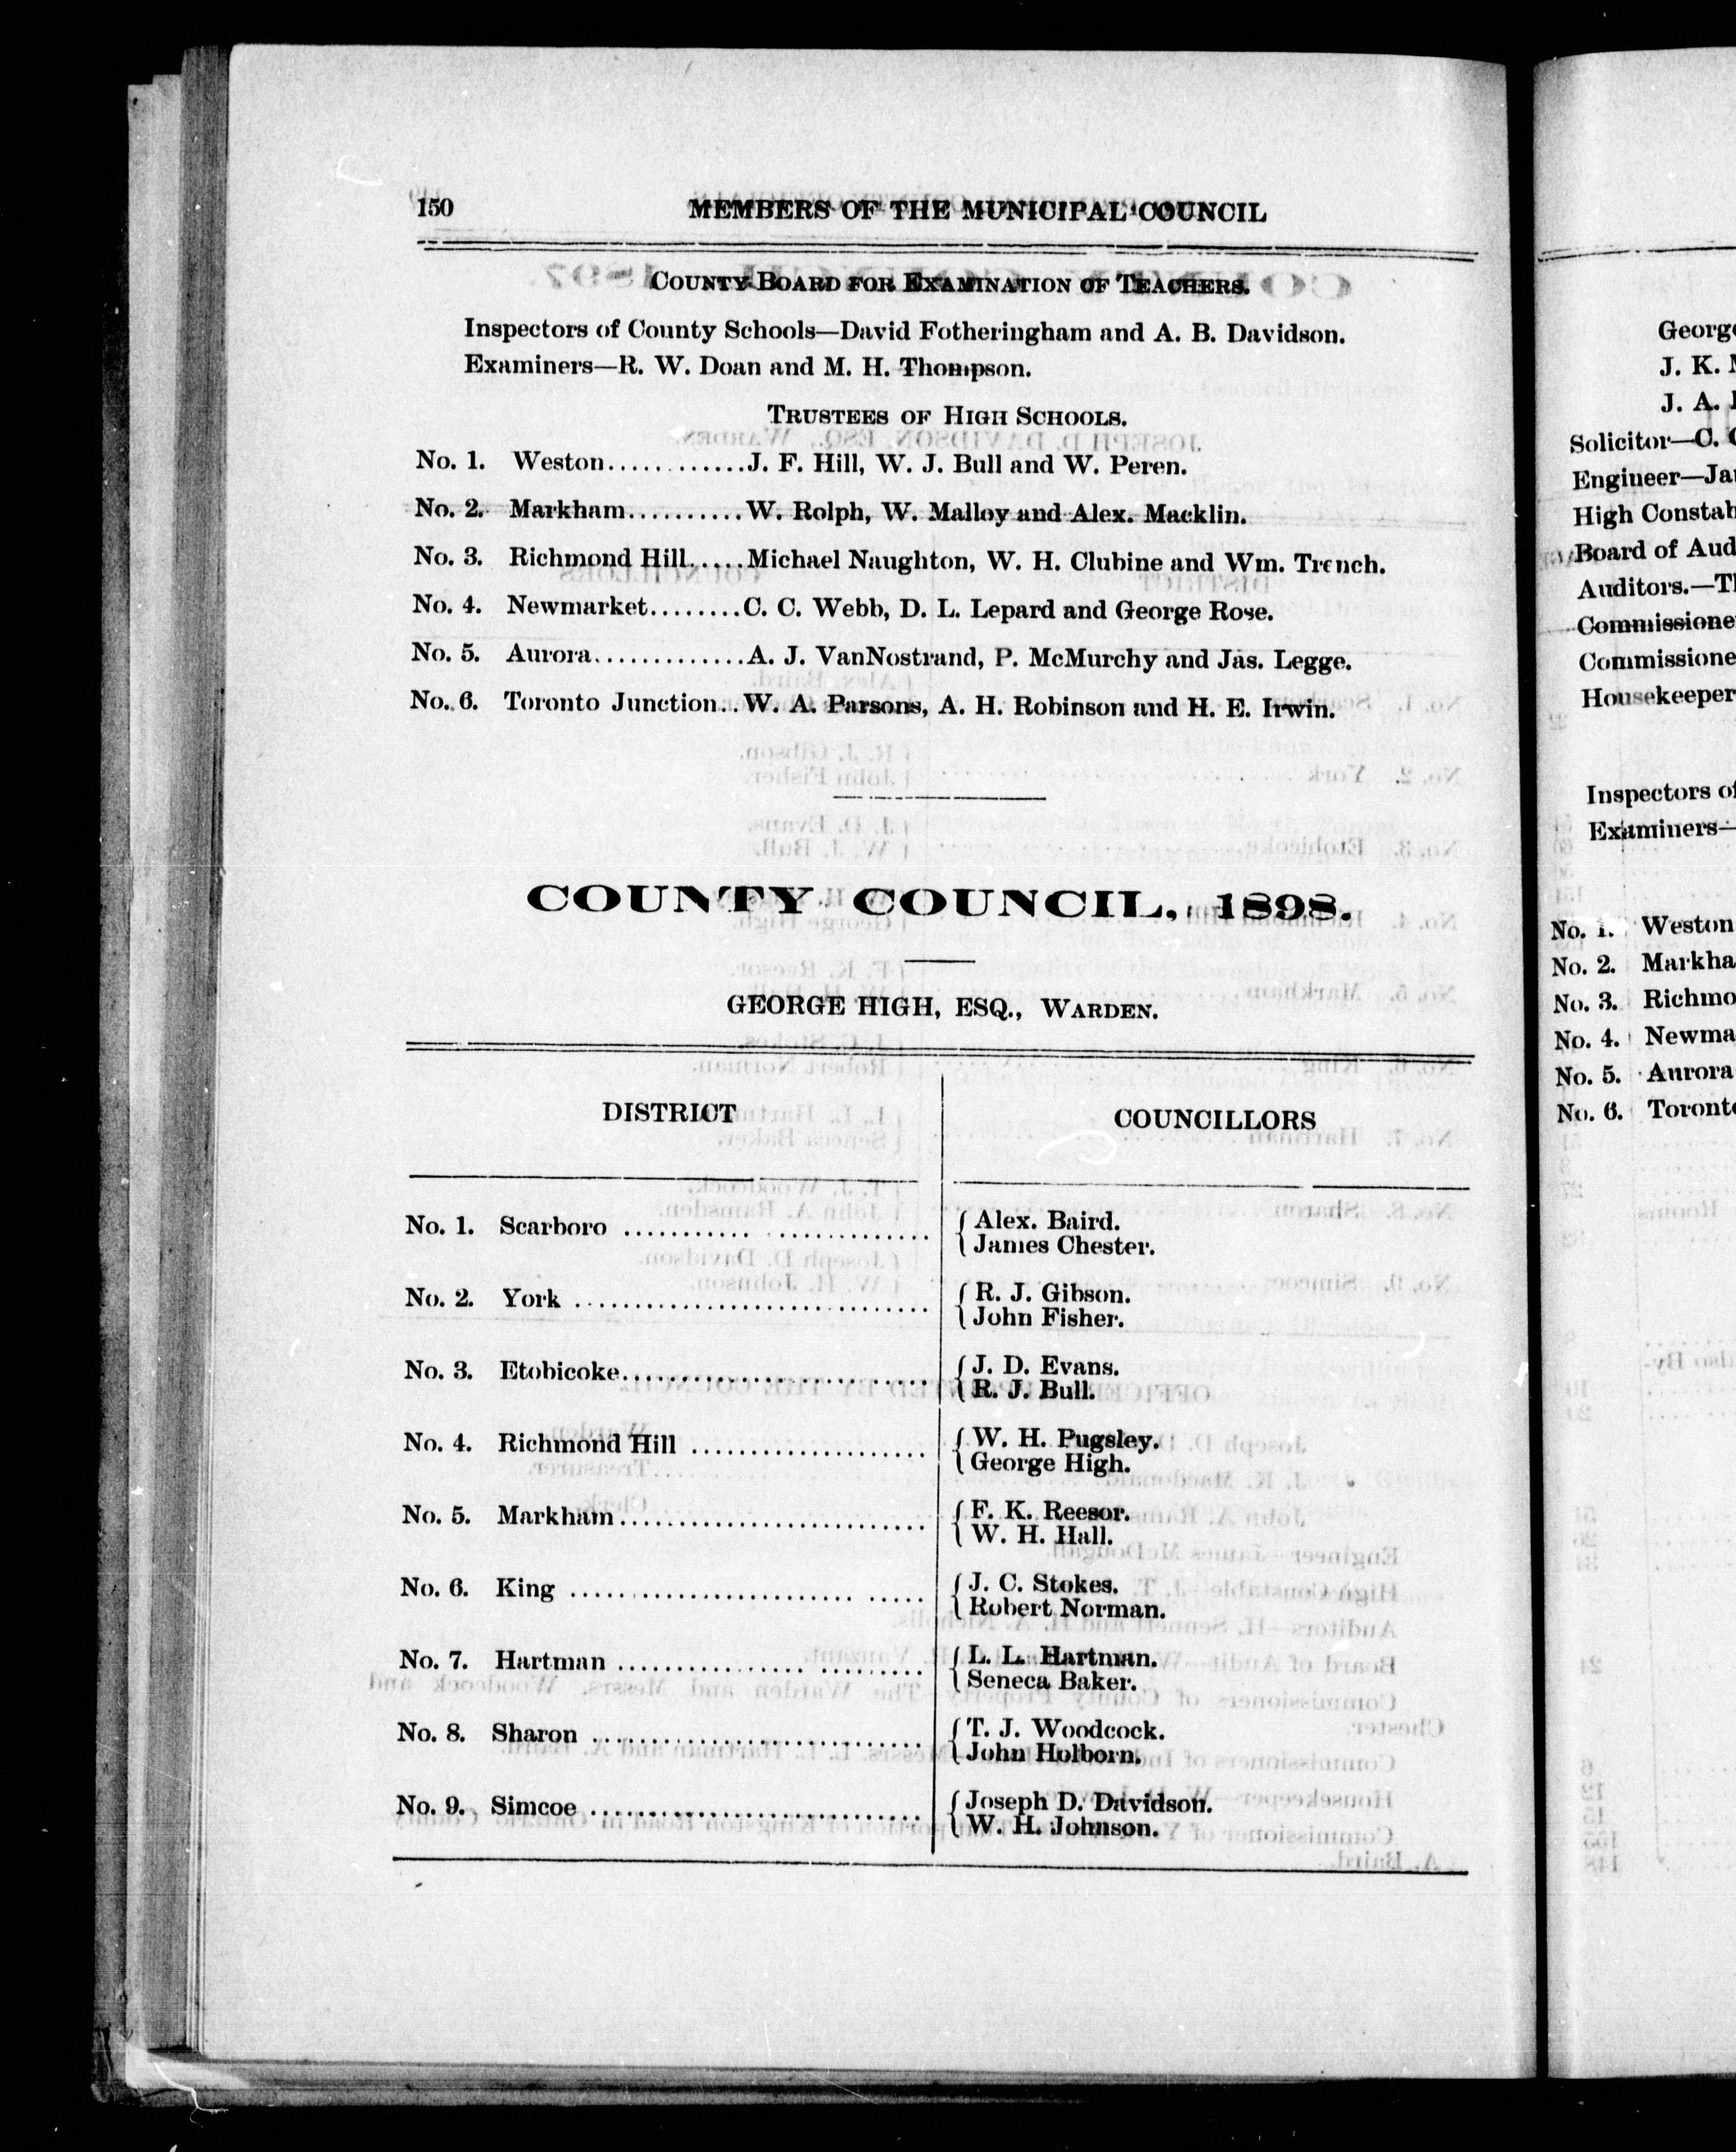 150 MEMBERS OF THE MUNICIPAL COUNCIL
COUNTY BOARD FOR EXAMINATION OF TEACHERS.
Inspectors of County Schools—David Fotheringham and A. B. Davidson.
Examiners—R. W. Doan and M. H. Thompson.
TRUSTEES OF HIGH SCHOOLS.
No. 1. Weston............J. F. Hill, W. J. Bull and W. Peren.
No. 2. Markham..........W. Rolph, W. Malloy and Alex. Macklin.
No. 3. Richmond Hill.....Michael Naughton, W. H. Clubine and Wm. Trench.
No. 4. Newmarket........C. C. Webb, D. L. Lepard and George Rose.
No. 5. Aurora.............A. J. VanNostrand, P. McMurchy and Jas. Legge.
No. 6. Toronto Junction..W. A. Parsons, A. H. Robinson and H. E. Irwin.
COUNTY COUNCIL, 1898.
GEORGE HIGH, ESQ., WARDEN.
DISTRICT COUNCILLORS
No. 1. Scarboro ............................ { Alex. Baird.
James Chester.
No. 2. York ................................ { R. J. Gibson.
John Fisher.
No. 3. Etobicoke............................ { J. D. Evans.
R. J. Bull.
No. 4. Richmond Hill ..................... { W. H. Pugsley.
George High.
No. 5. Markham............................ { F. K. Reesor.
W. H. Hall.
No. 6. King ............................... { J. C. Stokes.
Robert Norman.
No. 7. Hartman ........................... { L. L. Hartman.
Seneca Baker.
No. 8. Sharon .............................. { T. J. Woodcock.
John Holborn.
No. 9. Simcoe .............................. { Joseph D. Davidson.
W. H. Johnson.
George
J. K.
J. A.
Solicitor—C.
Engineer—Ja
High Constab
Board of Aud
Auditors.—Th
Commissione
Commissione
Housekeeper
Inspectors of
Examiners—
No. 1. Weston
No. 2. Markha
No. 3. Richmo
No. 4. Newma
No. 5. Aurora
No. 6. Toronto